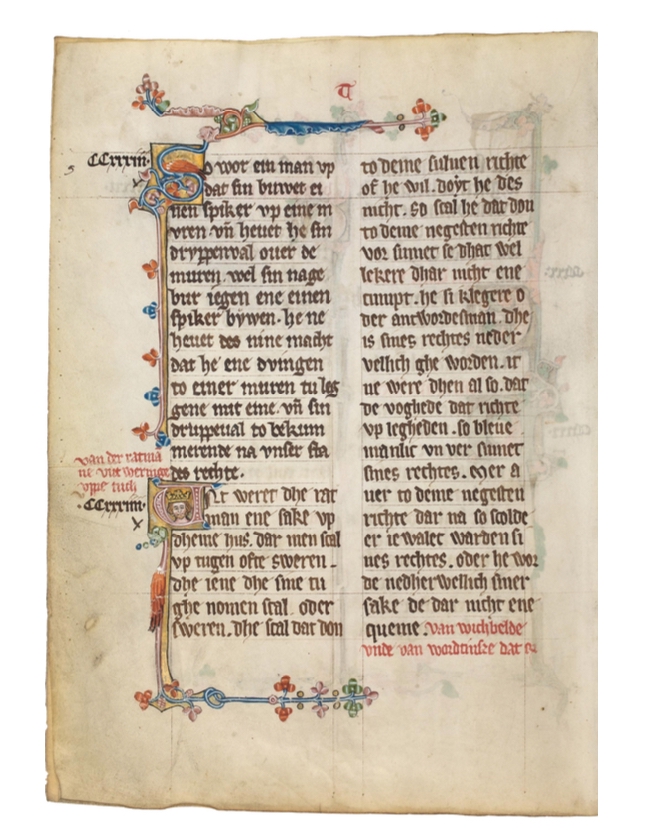 CCxxxiii.
So wor ein man vp
dat sin buwet ei
nen spiker vp eine m
vren vn̄ heuet he sin
dryppenval ouer de
muren. wel sin nage
bur iegen ene einen
spiker bywen. he ne
heuet des nine macht
dat he ene dvingen
to einer muren tu leg
gene mit eme. vn̄ sin
druppeual to bekum
merende na vnser sta
des rechte.
van der ratma
ne vut weringe
vppe tuch
CCxxxiiii.
Vt weret dhe rat
man ene sake vp
dheme hus. dar men scal
vp tugen ofte sweren.
dhe iene dhe sine tu
ghe nomen scal oder
sweren. dhe scal dat don
to deme suluen richte
of he wil. doyt he des
nicht. So scal he dat don
to deme negesten richte
vor sumet se dhat wel
lekere dhar nicht ene
cumpt. he si klegere o
der antwordesman. dhe
is sines rechtes neder
vellich ghe worden. it
ne were dhen al so. dat
de voghede dat richte
vp legheden. so bleue
manlic vn ver sumet
sines rechtes. mer a
uer to deme negesten
richte dar na so scolde
er iewalec warden si
nes rechtes. oder he wor
de nedherwellich siner
sake de dar nicht ene
queme. van wichbelde
vnde van wordtinse dat